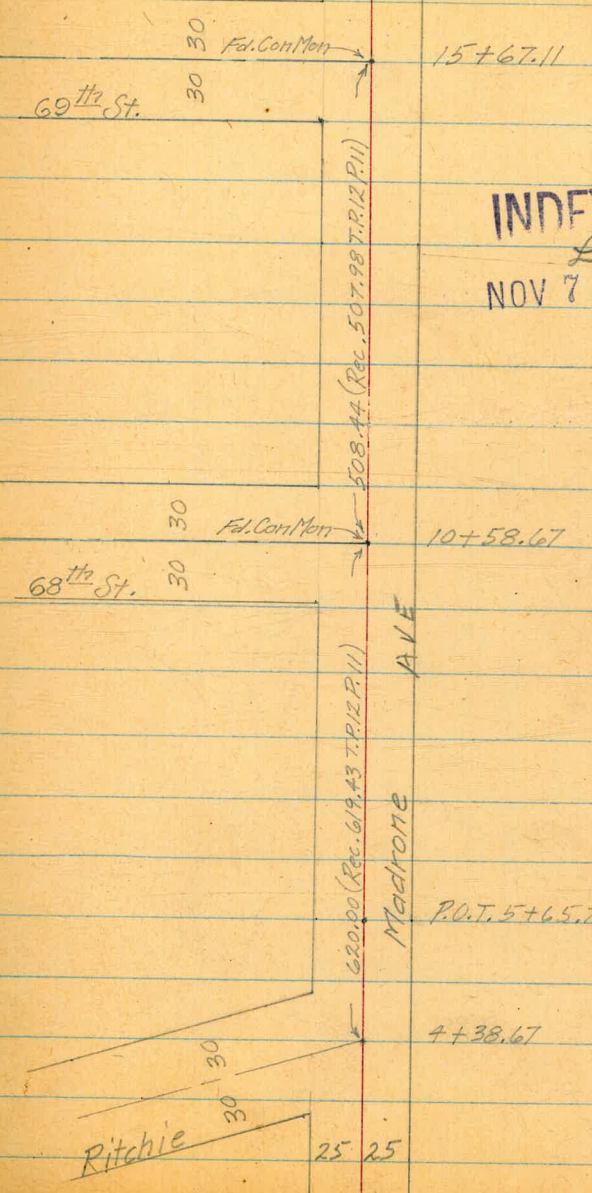 30 30
Fd. Con Mon
15+67.11
69th St.
508.44 (Rec. 507.98 T.P. 12 P. 11)
NOV 7
30 30
Fd. Con Mon
10+58.67
68th St.
Madrone AVE
620.00 (Rec. 619.43 T.P. 12 P. 11)
P.O.T. 5+65.
4+38.67
30
30
Ritchie
25 25